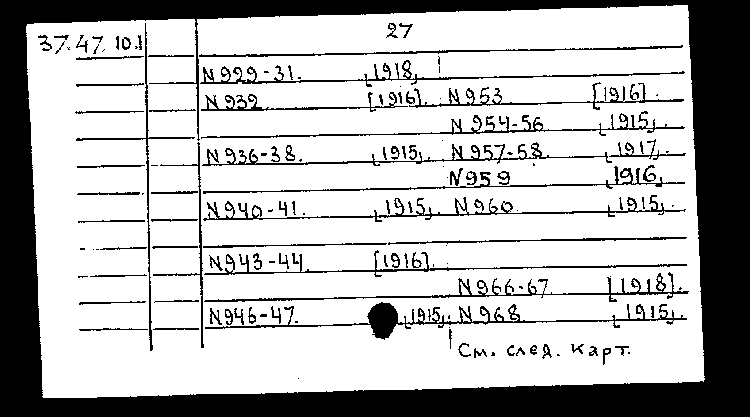 27
37.47.10.1
N929-31. [1918]
N932 [1916]. N953 [1916].
N954-56 [1915].
N936-38. [1915]. N957-58. [1917].
N959 [1916]
N940-41. [1915]. N960 [1915].
N943-44. [1916].
N966-67 [1918].
N946-47. [1915]. N968 [1915].
См. след. карт.